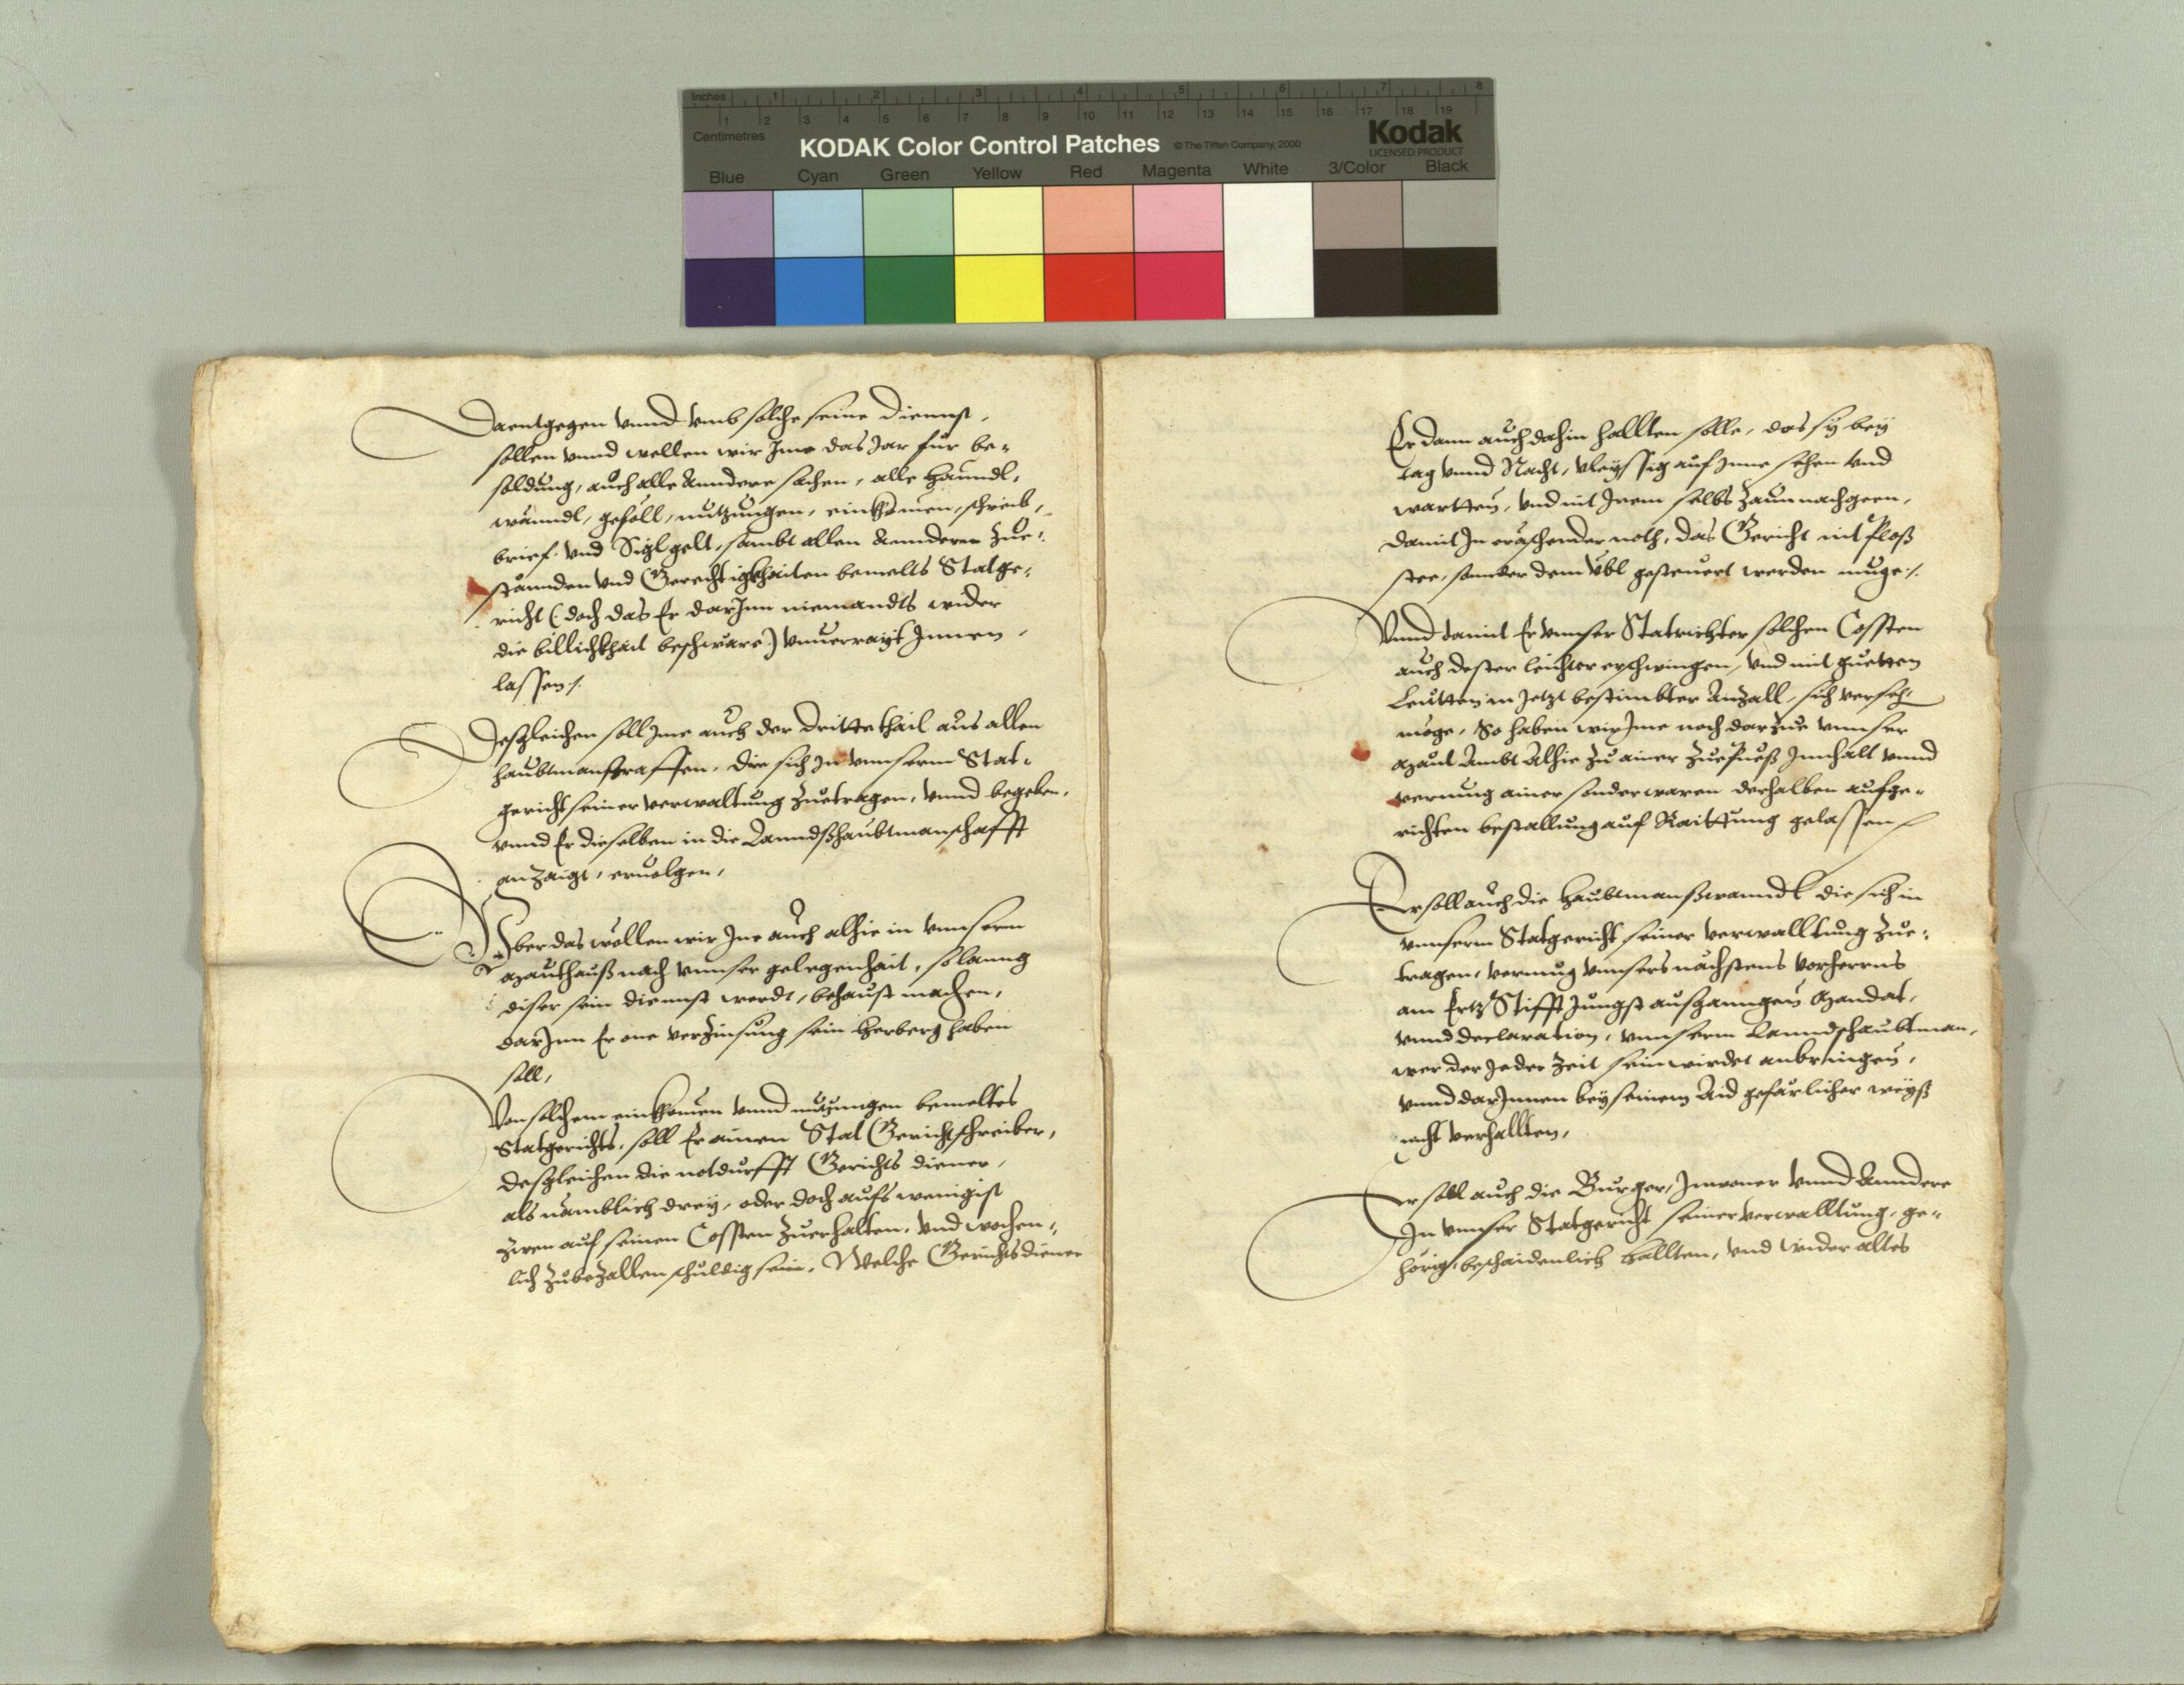 Inches 1 2 3 4 5 6 7 8
1 2 3 4 5 6 7 8 9 10 11 12 13 14 15 16 17 18 19
Centimetres
KODAK Color Control Patches © The Tiffen Company, 2000 Kodak
LICENSED PRODUCT
Blue Cyan Green Yellow Red Magenta White 3/Color Black
Daentgegen vnnd vmb solche seine diennst,
sollen vnnd wellen wir Jme das Jar fur be-
soldung, auch alle Anndere sachen, alle Hänndl,
wänndl, gefell, nutzungen, einkhomen, schreib,
brief. vnd Sigl gelt, sambt allen Annderen Zue-
stännden vnd Gerechtigkhaiten bemelts Statge-
richt (doch das Er darJnn niemandts wider
die billichkhait beschwäre) vnuerrayt Jnnen
lassen /.
Desgleichen soll Jme auch der dritte thail aus allen
haubtmanstraffen, die sich Jn vnnserm Stat-
gericht seiner verwaltung Zuetragen, vnnd begeben,
vnnd Er dieselben in die Lanndßhaubtmanschafft
anzaigt, eruolgen,
Vber das wöllen wir Jme auch alhie in vnnserm
Mauthauß nach vnnser gelegenhait, so lanng
diser sein diennst werdt, behaust machen,
darJnn Er one verzinsung sein Herberg haben
soll,
Von solchem einkhomen vnnd nutzungen bemeltes
Statgerichts, soll Er ainen Stat Gerichtschreiber,
desgleichen die notdurfft Gerichts diener,
als nämblich drey, oder doch aufs wenigist
zwen auf seinen Cossten Zuerhalten, vnd wochen-
lich Zubezallen schuldig sein, Welche Gerichts diener
Er dann auch dahin hallten solle, das sy bey
tag vnnd Nacht, vleyssig auf Jnne sehen vnd
wartten, vnd nit Jrem selbs Zaum nachgeen,
damit Jn eräschender noth, das Gericht nit Ploß
stee, sonder dem Vbl gesteuert werden muge /.
Vnnd damit Er vnnser Statrichter solchen Cossten
auch dester leichter erschwingen, vnd mit guetten
Leutten in Jetzt bestimbter Anzall, sich verseh
möge, So haben wir Jme noch darzue vnnser
Maut Ambt Alhie Zu ainer Zuepueß Jnnhalt vnnd
vermug ainer sonderwaren derhalben aufge-
richten bestallung auf Raittung gelassen
Er soll auch die Haubtmanßwanndl die sich in
vnnserm Statgericht seiner verwalltung Zue-
tragen, vermug vnnsers nächstens vorherrns
am Ertz Stifft Jungst außganngen Mandat,
vnnd declaration, vnnserm Lanndßhaubtman,
wer der Jeder Zeit sein wirdet anbringen,
vnnd darJnnen bey seinem Aid gefärlicher weyß
nicht verhallten,
Er soll auch die Burger, Jnwoner vnnd Anndere
Jn vnnser Statgericht seiner verwalltung, ge-
hörig, beschaidenlich hallten, vnd wider altes